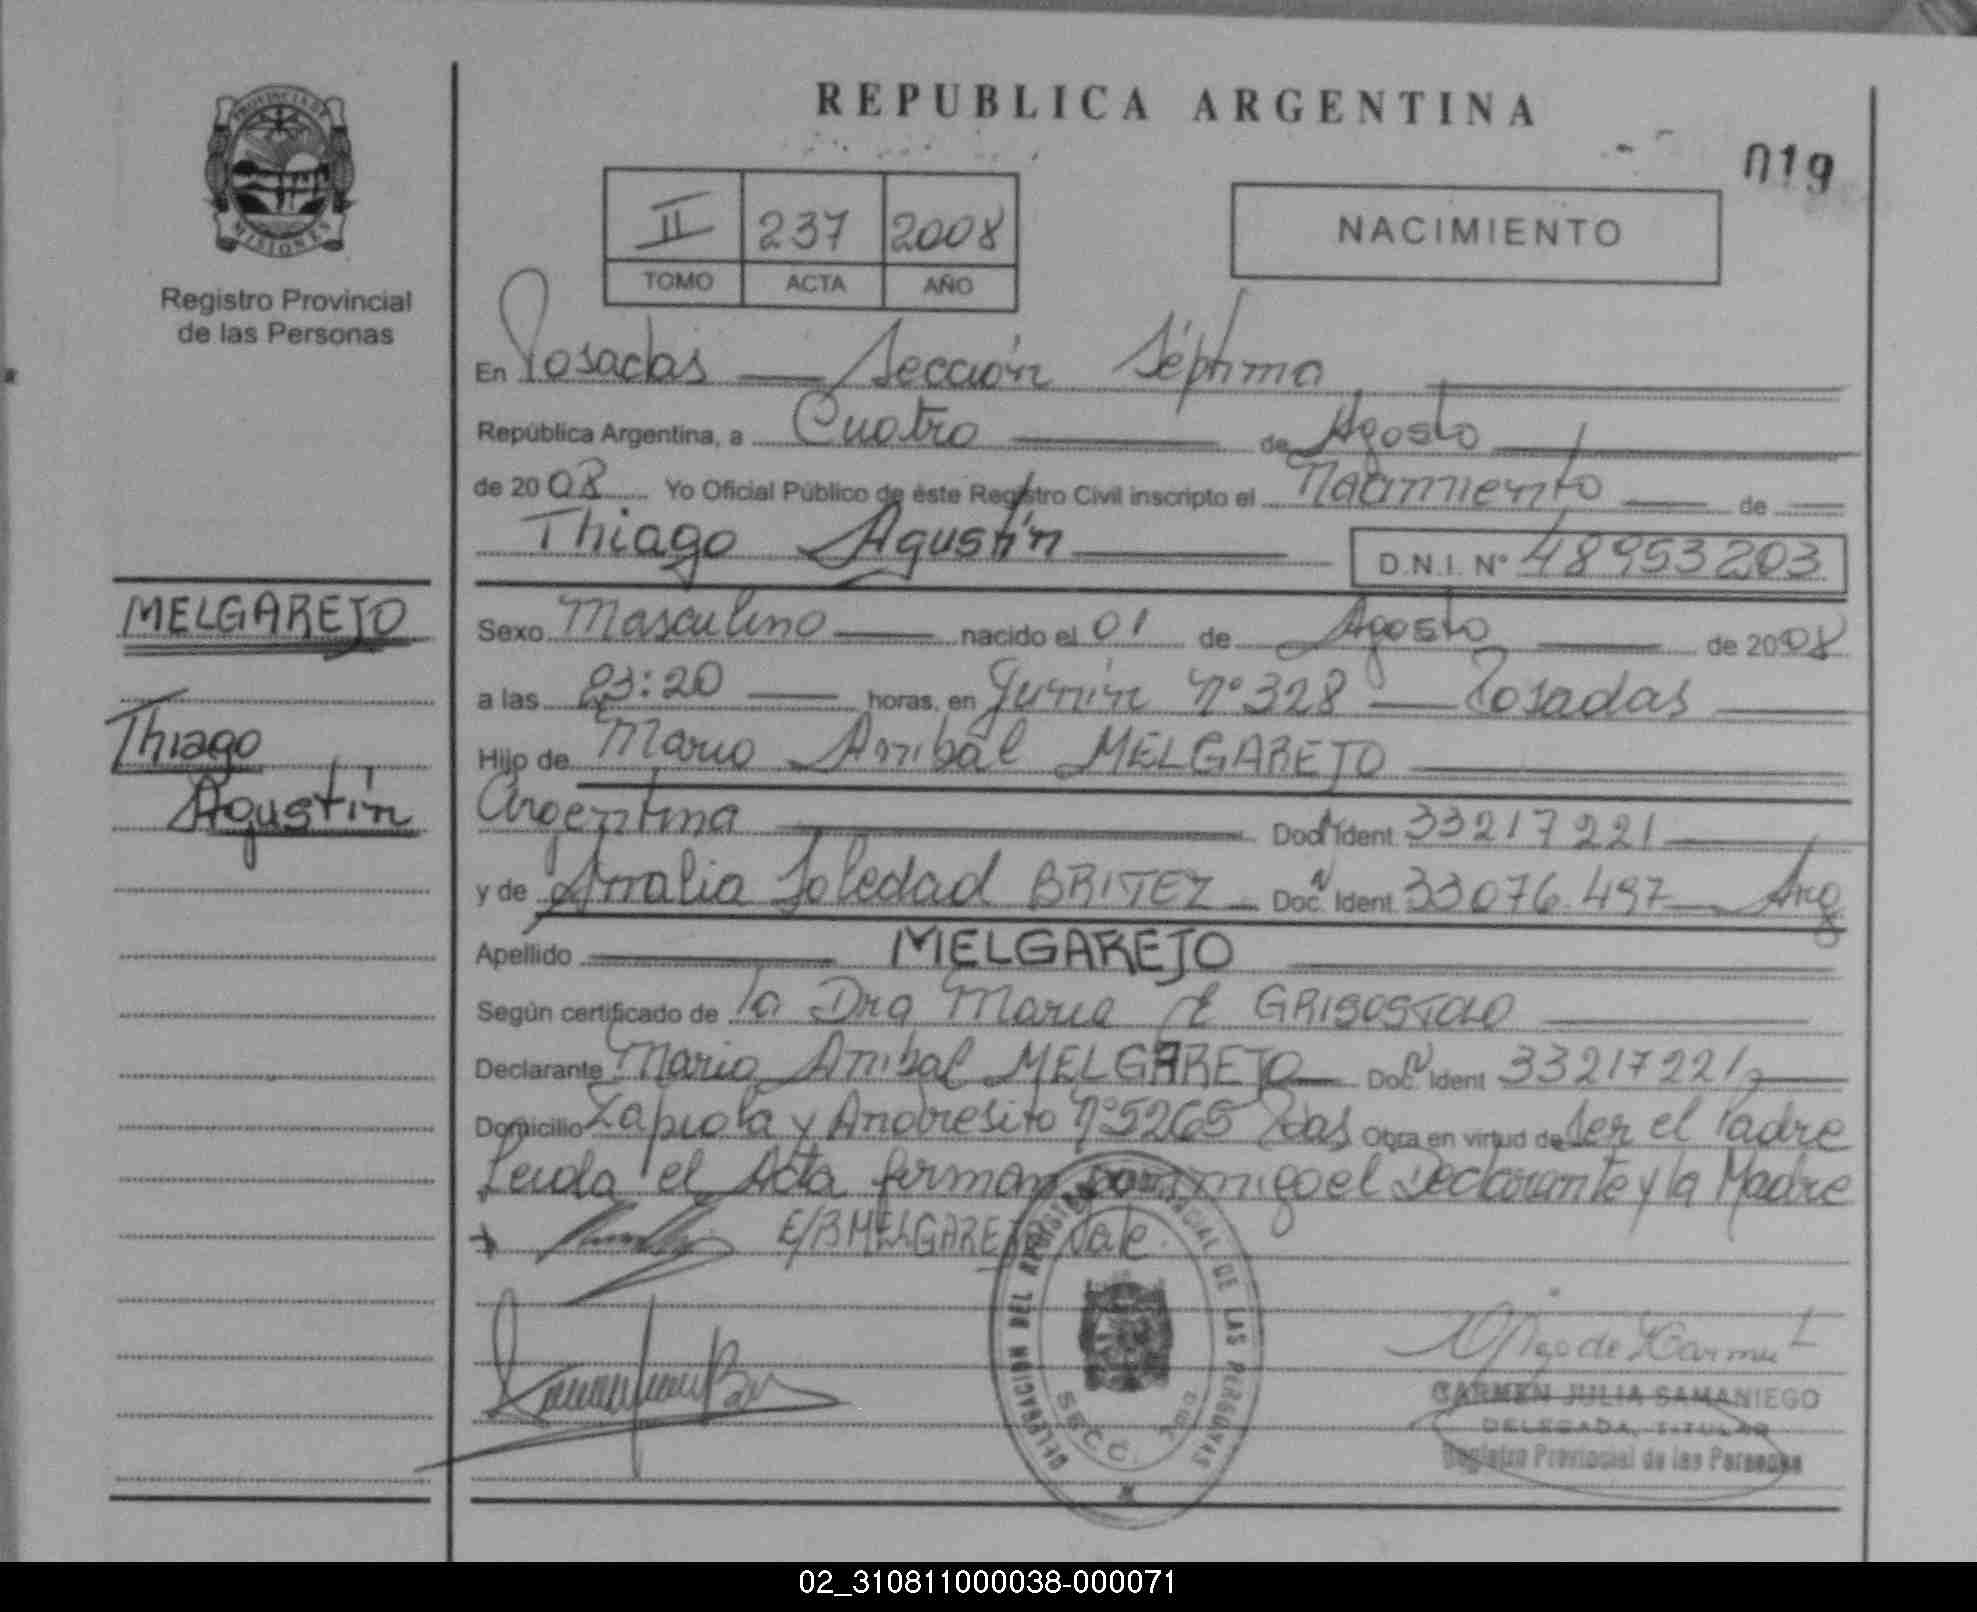 REPUBLICA ARGENTINA
019
PROVINCIA DE MISIONES
Registro Provincial
de las Personas
II 237 2008
TOMO ACTA AÑO
NACIMIENTO
En Posadas Sección Séptima
República Argentina, a Cuatro de Agosto
de 2008 Yo Oficial Público de éste Registro Civil inscripto el Nacimiento de
Thiago Agustín D.N.I. N° 48953203
MELGAREJO
Thiago
Agustín
Sexo Masculino nacido el 01 de Agosto de 2008
a las 23:20 horas, en Junín N° 328 Posadas
Hijo de Mario Anibal MELGAREJO
Argentina Doc. Ident. 33217221
y de Amalia Soledad BRITEZ Doc. Ident. 33076.497 Arg
Apellido MELGAREJO
Según certificado de la Dra Maria E GRISOSTOLO
Declarante Mario Anibal MELGAREJO Doc. Ident 33217221
Domicilio Zapiola y Andresito N°5265 Pdas Obra en virtud de Ser el Padre
Leida el Acta firman conmigo el Declarante y la Madre
E/B MELGAREJO Vale.
DELEGACION DEL REGISTRO PROVINCIAL DE LAS PERSONAS
CARMEN JULIA SAMANIEGO
DELEGADA TITULAR
Registro Provincial de las Personas
02_310811000038-000071